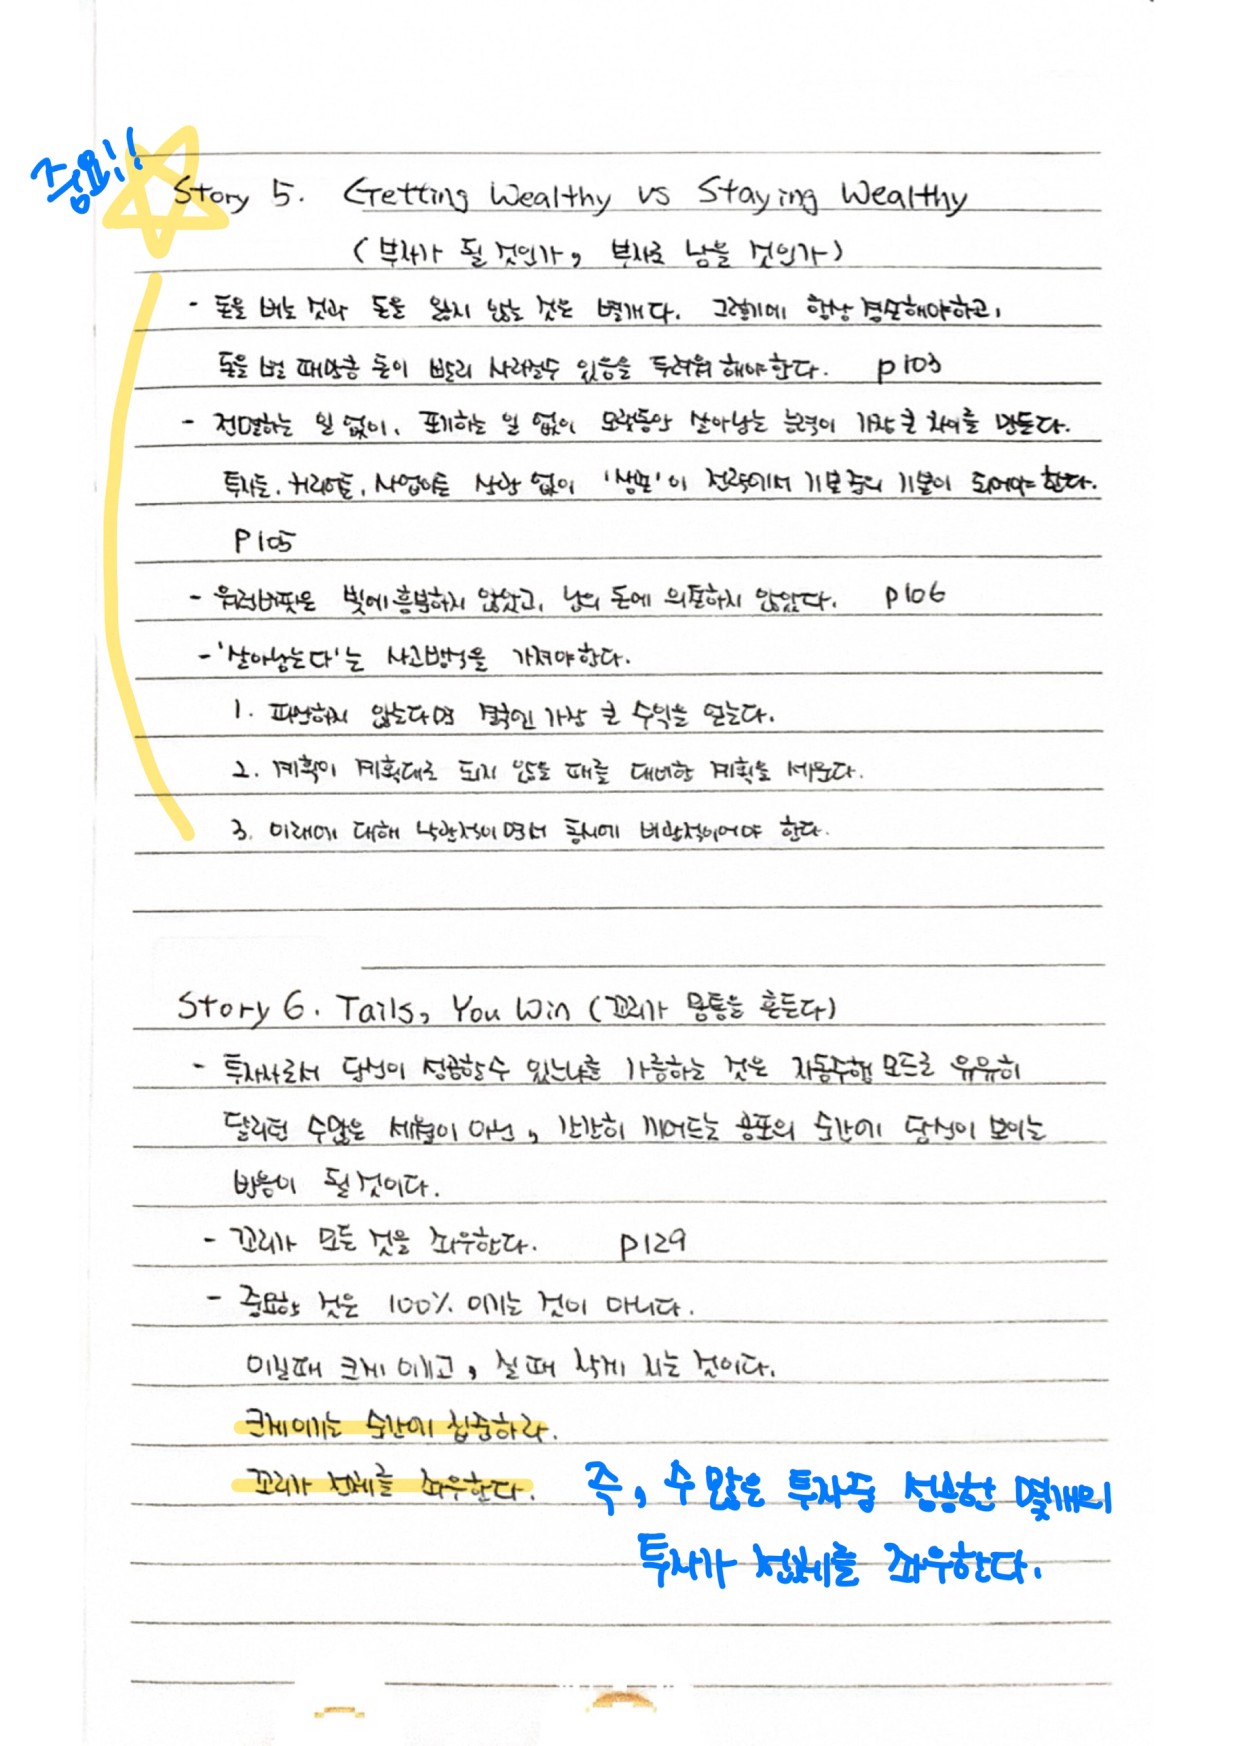 중요!!
Story 5. Getting Wealthy vs Staying Wealthy
(부자가 될 것인가, 부자로 남을 것인가)
- 돈을 버는 것과 돈을 잃지 않는 것은 별개다. 그렇기에 항상 겸손해야하고,
돈을 벌 때만큼 돈이 빨리 사라질수 있음을 두려워 해야한다. p103
- 전멸하는 일 없이, 포기하는 일 없이 오랫동안 살아남는 능력이 가장 큰 차이를 만든다.
투자든, 커리어든, 사업이든 상관 없이 '생존'이 전략에서 기본 중의 기본이 되어야 한다.
P105
- 워런버핏은 빚에 흥분하지 않았고, 남의 돈에 의존하지 않았다. p106
- '살아남는다'는 사고방식을 가져야한다.
1. 파산하지 않는다면 결국엔 가장 큰 수익을 얻는다.
2. 계획이 계획대로 되지 않을 때를 대비한 계획을 세운다.
3. 미래에 대해 낙관적이면서 동시에 비관적이어야 한다.
Story 6. Tails, You Win (꼬리가 몸통을 흔든다)
- 투자자로서 당신이 성공할수 있느냐를 가름하는 것은 자동주행 모드로 유유히
달리던 수많은 세월이 아닌, 간간히 끼어드는 공포의 순간에 당신이 보이는
반응이 될 것이다.
- 꼬리가 모든 것을 좌우한다. p129
- 중요한 것은 100% 이기는 것이 아니다.
이길때 크게 이기고, 질 때 작게 지는 것이다.
크게 이기는 순간에 집중하라.
꼬리가 전체를 좌우한다.
즉, 수 많은 투자중 성공한 몇개의
투자가 전체를 좌우한다.